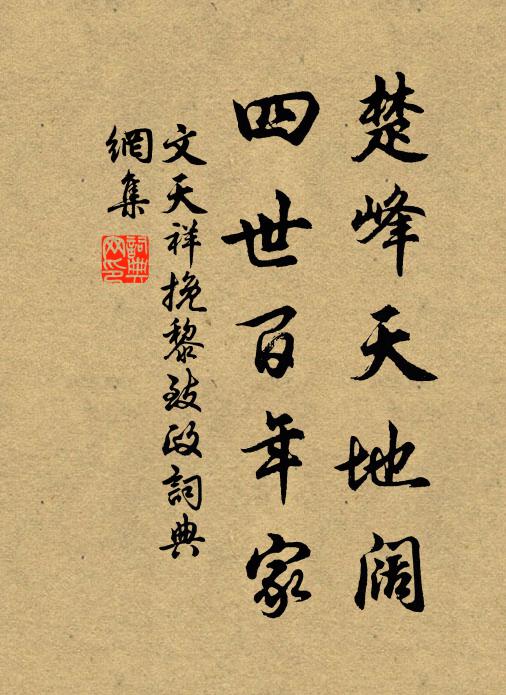 楚峰天地阔
四世百年家
文天祥挽黎致政詞典
網集
詞典
网印